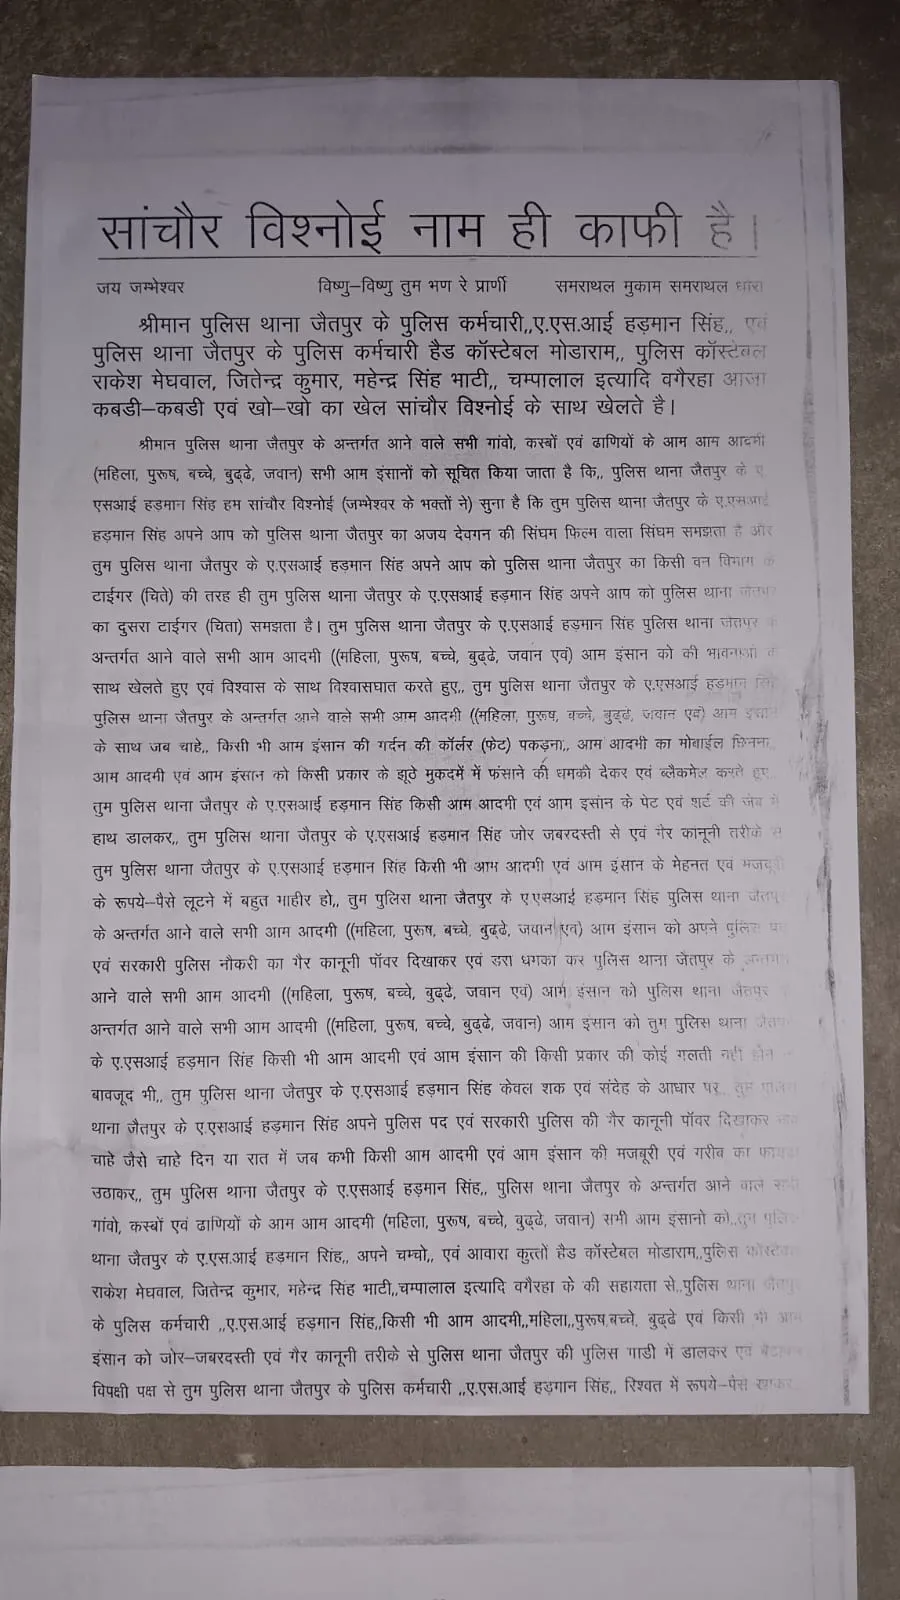 सांचौर विश्नोई नाम ही काफी है।
जय जम्भेश्वर विष्णु–विष्णु तुम भण रे प्राणी समराथल मुकाम समराथल धोरा
श्रीमान पुलिस थाना जैतपुर के पुलिस कर्मचारी,,ए.एस.आई हड़मान सिंह,, एवं
पुलिस थाना जैतपुर के पुलिस कर्मचारी हैड कॉस्टेबल मोडाराम,, पुलिस कॉस्टेबल
राकेश मेघवाल, जितेन्द्र कुमार, महेन्द्र सिंह भाटी,, चम्पालाल इत्यादि वगैरहा आजा
कबडी–कबडी एवं खो–खो का खेल सांचौर विश्नोई के साथ खेलते है।
श्रीमान पुलिस थाना जैतपुर के अन्तर्गत आने वाले सभी गांवो, कस्बों एवं ढाणियों के आम आम आदमी
(महिला, पुरूष, बच्चे, बुढ्ढे, जवान) सभी आम इंसानों को सूचित किया जाता है कि,, पुलिस थाना जैतपुर के ए.
एसआई हड़मान सिंह हम सांचौर विश्नोई (जम्भेश्वर के भक्तों ने) सुना है कि तुम पुलिस थाना जैतपुर के ए.एसआई
हड़मान सिंह अपने आप को पुलिस थाना जैतपुर का अजय देवगन की सिंघम फिल्म वाला सिंघम समझता है और
तुम पुलिस थाना जैतपुर के ए.एसआई हड़मान सिंह अपने आप को पुलिस थाना जैतपुर का किसी वन विभाग के
टाईगर (चिते) की तरह ही तुम पुलिस थाना जैतपुर के ए.एसआई हड़मान सिंह अपने आप को पुलिस थाना जैतपुर
का दुसरा टाईगर (चिता) समझता है। तुम पुलिस थाना जैतपुर के ए.एसआई हड़मान सिंह पुलिस थाना जैतपुर के
अन्तर्गत आने वाले सभी आम आदमी ((महिला, पुरूष, बच्चे, बुढ्ढे, जवान एवं) आम इंसान को की भावनाओं के
साथ खेलते हुए एवं विश्वास के साथ विश्वासघात करते हुए,, तुम पुलिस थाना जैतपुर के ए.एसआई हड़मान सिंह
पुलिस थाना जैतपुर के अन्तर्गत आने वाले सभी आम आदमी ((महिला, पुरूष, बच्चे, बुढ्ढे, जवान एवं) आम इंसान
के साथ जब चाहे,, किसी भी आम इंसान की गर्दन की कॉर्लर (फेट) पकड़ना,, आम आदमी का मोबाईल छिनना,
आम आदमी एवं आम इंसान को किसी प्रकार के झूठे मुकदमें में फंसाने की धमकी देकर एवं ब्लैकमेल करते हुए
तुम पुलिस थाना जैतपुर के ए.एसआई हड़मान सिंह किसी आम आदमी एवं आम इसांन के पेट एवं शर्ट की जेब में
हाथ डालकर,, तुम पुलिस थाना जैतपुर के ए.एसआई हड़मान सिंह जोर जबरदस्ती से एवं गैर कानूनी तरीके से
तुम पुलिस थाना जैतपुर के ए.एसआई हड़मान सिंह किसी भी आम आदमी एवं आम इंसान के मेहनत एवं मजदूरी
के रूपये–पैसे लूटने में बहुत माहीर हो,, तुम पुलिस थाना जैतपुर के ए.एसआई हड़मान सिंह पुलिस थाना जैतपुर
के अन्तर्गत आने वाले सभी आम आदमी ((महिला, पुरूष, बच्चे, बुढ्ढे, जवान एवं) आम इंसान को अपने पुलिस पद
एवं सरकारी पुलिस नौकरी का गैर कानूनी पॉवर दिखाकर एवं डरा धमका कर पुलिस थाना जैतपुर के अन्तर्गत
आने वाले सभी आम आदमी ((महिला, पुरूष, बच्चे, बुढ्ढे, जवान एवं) आम इंसान को पुलिस थाना जैतपुर के
अन्तर्गत आने वाले सभी आम आदमी ((महिला, पुरूष, बच्चे, बुढ्ढे, जवान) आम इंसान को तुम पुलिस थाना जैतपुर
के ए.एसआई हड़मान सिंह किसी भी आम आदमी एवं आम इंसान की किसी प्रकार की कोई गलती नही होने
बावजूद भी,, तुम पुलिस थाना जैतपुर के ए.एसआई हड़मान सिंह केवल शक एवं संदेह के आधार पर,, तुम पुलिस
थाना जैतपुर के ए.एसआई हड़मान सिंह अपने पुलिस पद एवं सरकारी पुलिस की गैर कानूनी पॉवर दिखाकर
चाहे जैसे चाहे दिन या रात में जब कभी किसी आम आदमी एवं आम इंसान की मजबूरी एवं गरीब का फायदा
उठाकर,, तुम पुलिस थाना जैतपुर के ए.एसआई हड़मान सिंह,, पुलिस थाना जैतपुर के अन्तर्गत आने वाले सभी
गांवो, कस्बों एवं ढाणियों के आम आम आदमी (महिला, पुरूष, बच्चे, बुढ्ढे, जवान) सभी आम इंसानो को,,तुम पुलिस
थाना जैतपुर के ए.एस.आई हड़मान सिंह,, अपने चम्चो,, एवं आवारा कुत्तों हैड कॉस्टेबल मोडाराम,,पुलिस कॉस्टेबल
राकेश मेघवाल, जितेन्द्र कुमार, महेन्द्र सिंह भाटी,,चम्पालाल इत्यादि वगैरहा के की सहायता से,,पुलिस थाना जैतपुर
के पुलिस कर्मचारी ,,ए.एस.आई हड़मान सिंह,,किसी भी आम आदमी,,महिला,,पुरूष,बच्चे, बुढ्ढे एवं किसी भी आम
इंसान को जोर–जबरदस्ती एवं गैर कानूनी तरीके से पुलिस थाना जैतपुर की पुलिस गाडी में डालकर एवं बैठाकर
विपक्षी पक्ष से तुम पुलिस थाना जैतपुर के पुलिस कर्मचारी ,,ए.एस.आई हड़मान सिंह,, रिश्वत में रूपये–पैसे खाकर